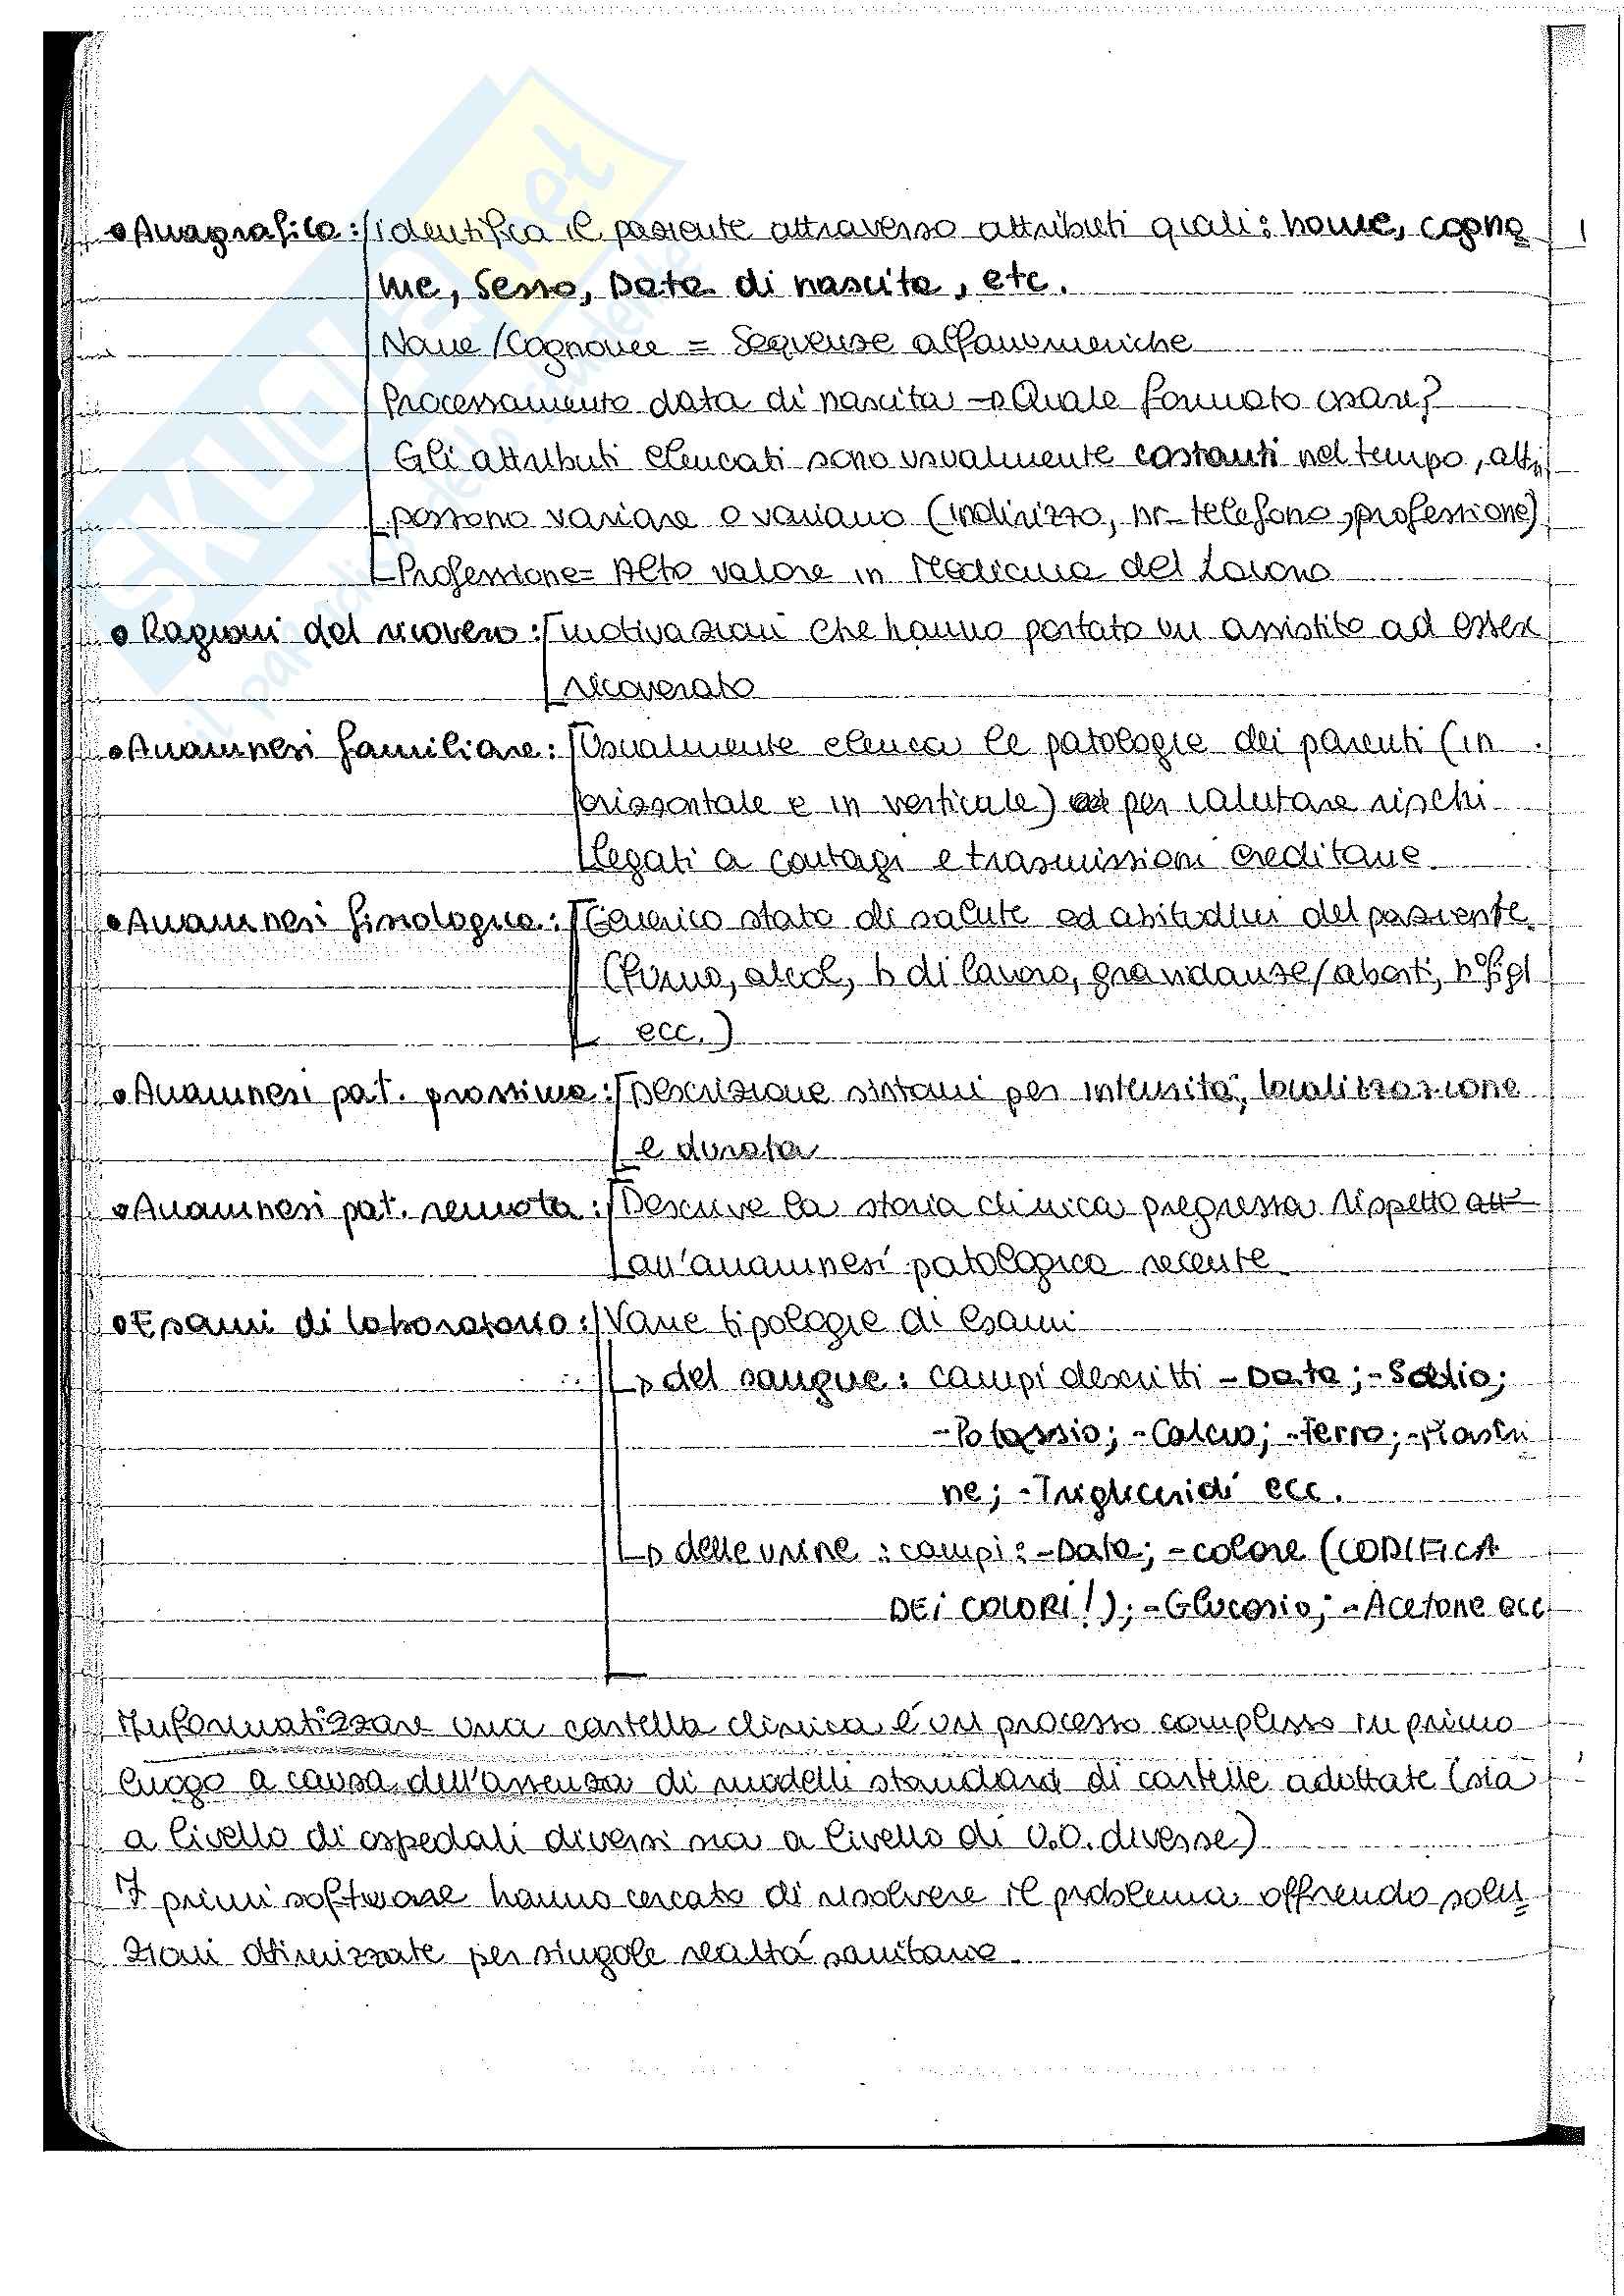 • Anagrafica: identifica il paziente attraverso attributi quali: nome, cogno
me, Sesso, Data di nascita, etc.
Nome/Cognome = Sequenze alfanumeriche
Processamento data di nascita → Quale formato usare?
Gli attributi elencati sono usualmente costanti nel tempo, altri
possono variare o variano (indirizzo, nr_telefono, professione)
Professione = Alto valore in Medicina del Lavoro
• Ragioni del ricovero: motivazioni che hanno portato un assistito ad esser
ricoverato
• Anamnesi familiare: Usualmente elenca le patologie dei parenti (in
orizzontale e in verticale) per valutare rischi
legati a contagi e trasmissioni ereditarie
• Anamnesi fisiologica: Generico stato di salute ed abitudini del paziente
(fumo, alcol, h di lavoro, gravidanze/aborti, n° figl
ecc.)
• Anamnesi pat. prossima: Descrizione sintomi per intensità, localizzazione
e durata
• Anamnesi pat. remota: Descrive la storia clinica pregressa rispetto all'
all'anamnesi patologica recente
• Esami di laboratorio: Varie tipologie di esami
↳ del sangue: campi descritti - Data; - Sodio;
- Potassio; - Calcio; - Ferro; - Piastri
ne; - Trigliceridi ecc.
↳ delle urine: campi: - Data; - colore (CODIFICA
DEI COLORI!); - Glucosio; - Acetone ecc
Informatizzare una cartella clinica è un processo complesso in primo
luogo a causa dell'assenza di modelli standard di cartelle adottate (sia
a livello di ospedali diversi sia a livello di U.O. diverse)
I primi software hanno cercato di risolvere il problema offrendo solu
zioni ottimizzate per singole realtà sanitarie.
SKUOLA.net
il paradiso dello studente